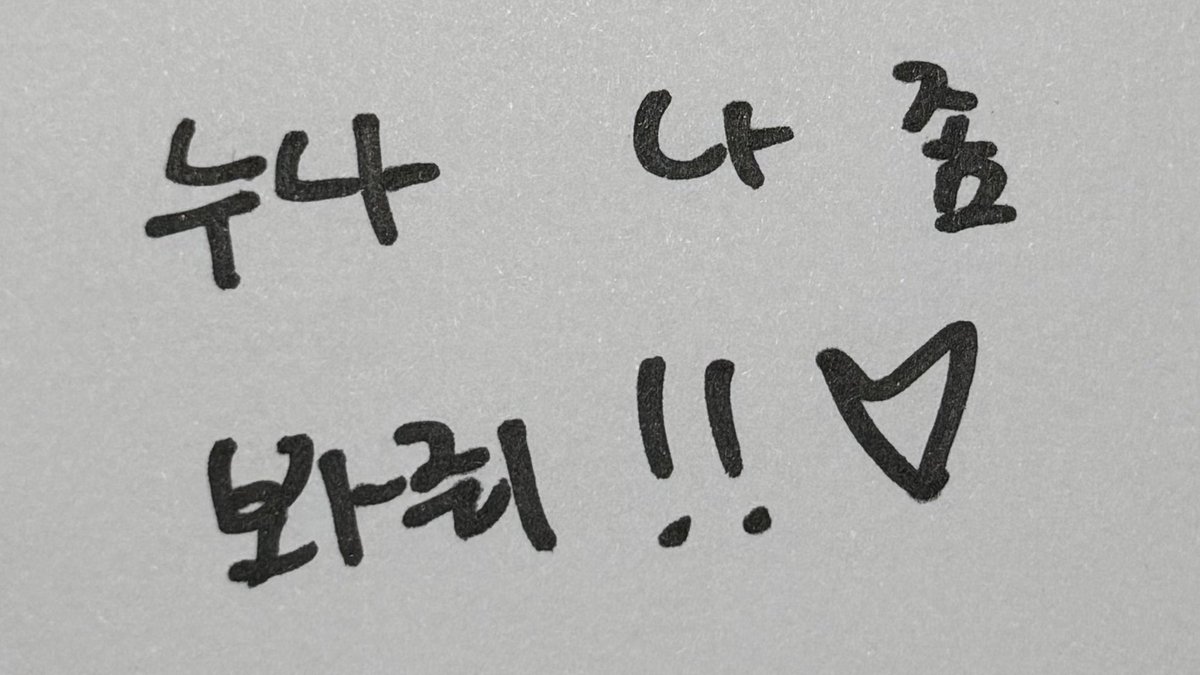 누나 나 좀
봐줘!!♡